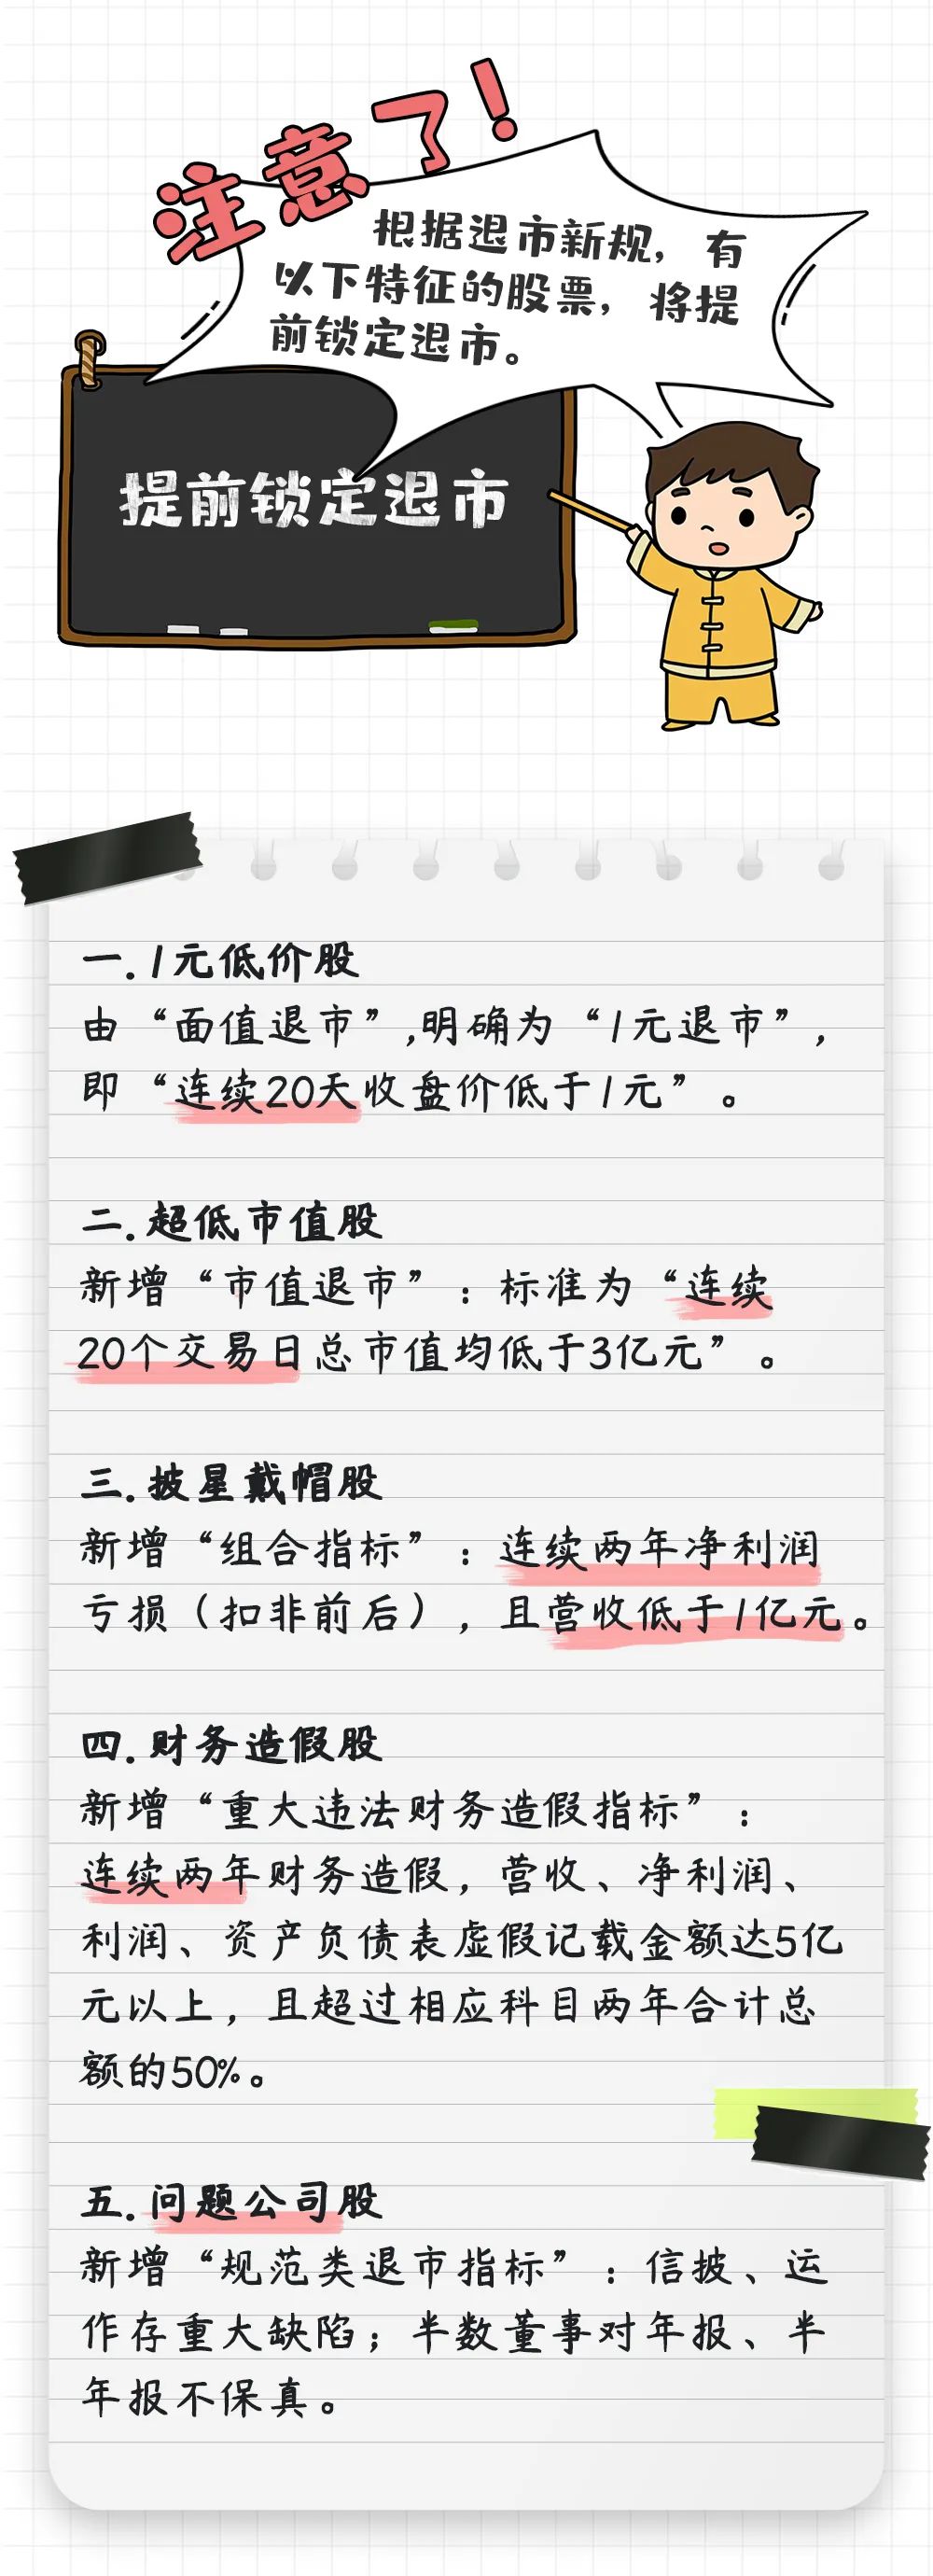 注意了！
根据退市新规，有
以下特征的股票，将提
前锁定退市。
提前锁定退市
一.1元低价股
由“面值退市”,明确为“1元退市”，
即“连续20天收盘价低于1元”。
二.超低市值股
新增“市值退市”：标准为“连续
20个交易日总市值均低于3亿元”。
三.披星戴帽股
新增“组合指标”：连续两年净利润
亏损（扣非前后），且营收低于1亿元。
四.财务造假股
新增“重大违法财务造假指标”：
连续两年财务造假，营收、净利润、
利润、资产负债表虚假记载金额达5亿
元以上，且超过相应科目两年合计总
额的50%。
五.问题公司股
新增“规范类退市指标”：信披、运
作存重大缺陷；半数董事对年报、半
年报不保真。